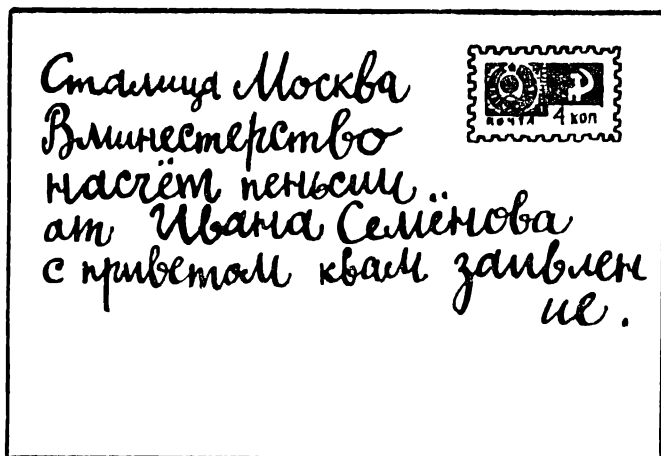 Сталица Москва
Вминестерство
насчёт пеньсии
ат Ивана Семёнова
с приветом квам заивлен
ие.
почта 4 коп